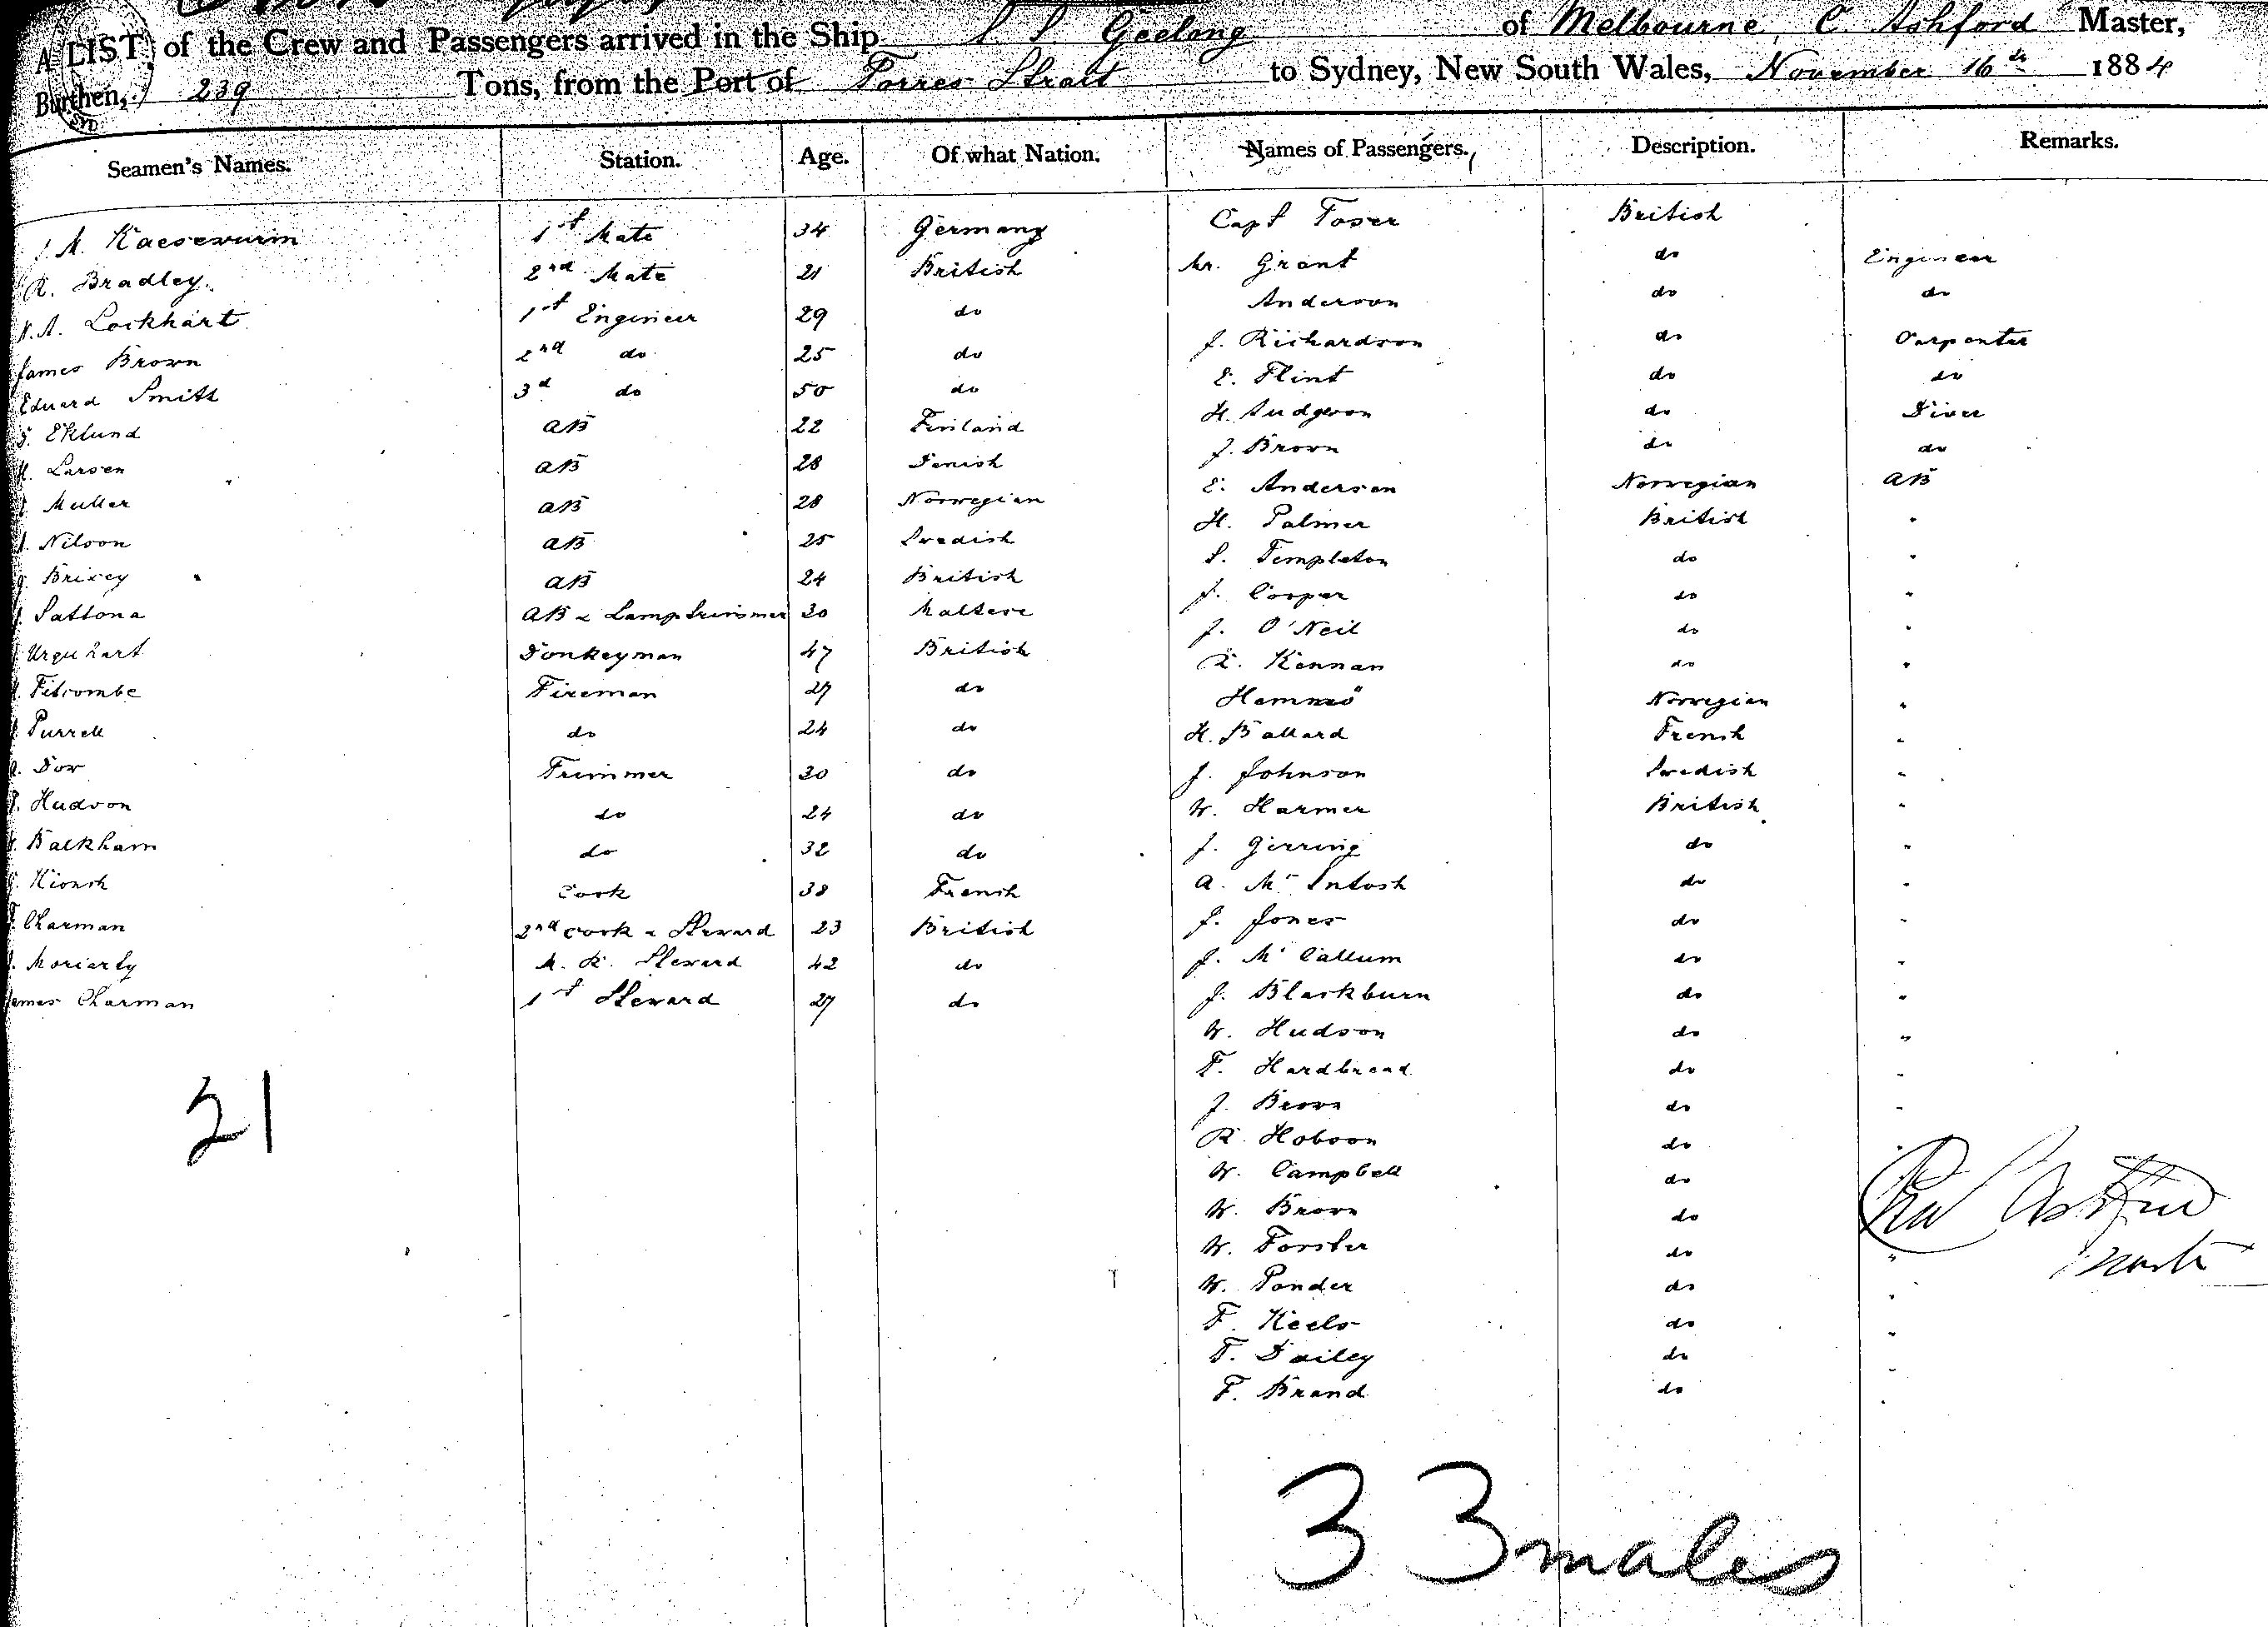 A LIST of the Crew and Passengers arrived in the Ship S. S. Geelong of Melbourne, C. Ashford Master,
Burthen, 239 Tons, from the Port of Torres Strait to Sydney, New South Wales, November 16th 1884
Seamen's Names. Station. Age. Of what Nation. Names of Passengers. Description. Remarks.
M. Kaesewurm 1st Mate 34 Germany Capt Toser British
R. Bradley 2nd Mate 21 British Mr. Grant do Engineer
A. Lockhart 1st Engineer 29 do Anderson do do
James Brown 2nd do 25 do J. Richardson do Carpenter
Eduard Smith 3d do 50 do E. Flint do do
Eklund AB 22 Finland H. Judgson do Diver
H. Larsen AB 28 Danish J. Brown do do
Muller AB 28 Norwegian E. Anderson Norwegian AB
Nilson AB 25 Swedish H. Palmer British "
Brixey AB 24 British S. Templeton do "
Sattona AB & Lamptrimmer 30 Maltese J. Cooper do "
Urquhart Donkeyman 47 British J. O'Neil do "
Titcombe Fireman 27 do R. Kennan do "
Purrell do 24 do Norwegian "
Dow Trimmer 30 do H. Ballard French "
Hudson do 24 do J. Johnson Swedish "
Balkham do 32 do W. Harmer British "
Cook 38 French J. Girring do "
Charman 2nd Cook & Steward 23 British A. McIntosh do "
Moriarty M. R. Steward 42 do J. Jones do "
James Charman 1st Steward 27 do J. McCallum do "
J. Blackburn do "
W. Hudson do "
F. Hardbread do "
J. Brown do "
R. Hobson do "
W. Campbell do
W. Brown do
W. Forster do "
W. Ponder do "
F. Keels do "
T. Dailey do "
F. Brand do "
21
33 males